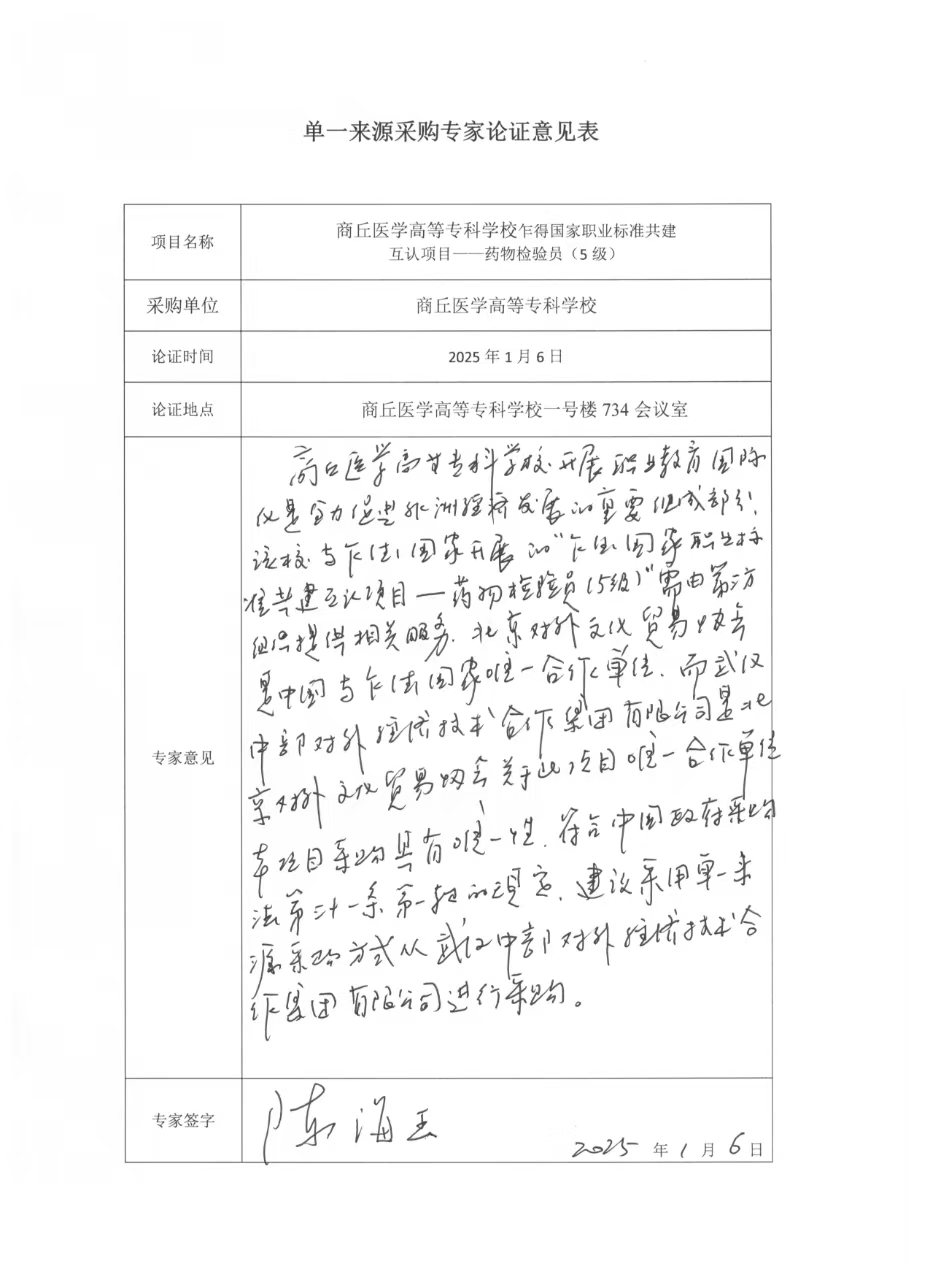 单一来源采购专家论证意见表
项目名称
商丘医学高等专科学校乍得国家职业标准共建
互认项目——药物检验员（5 级）
采购单位
商丘医学高等专科学校
论证时间
2025 年 1 月 6 日
论证地点
商丘医学高等专科学校一号楼 734 会议室
专家意见
商丘医学高等专科学校开展职业教育国际
是 促进非洲经济发展的重要组成部分，
该校与乍得国家开展的“乍得国家职业标
准共建互认项目—药物检验员（5级）”需由第三方
组织提供相关服务.北京对外文化贸易协会
是中国与乍得国家唯一合作单位.而武汉
中部对外经济技术合作集团有限公司是北
京对外文化贸易协会关于此项目唯一合作单位
本项目采购具有唯一性.符合中国政府采购
法第三十一条第一款的规定.建议采用单一来
源采购方式从武汉中部对外经济技术合
作集团有限公司进行采购。
专家签字
陈海
2025 年 1 月 6 日